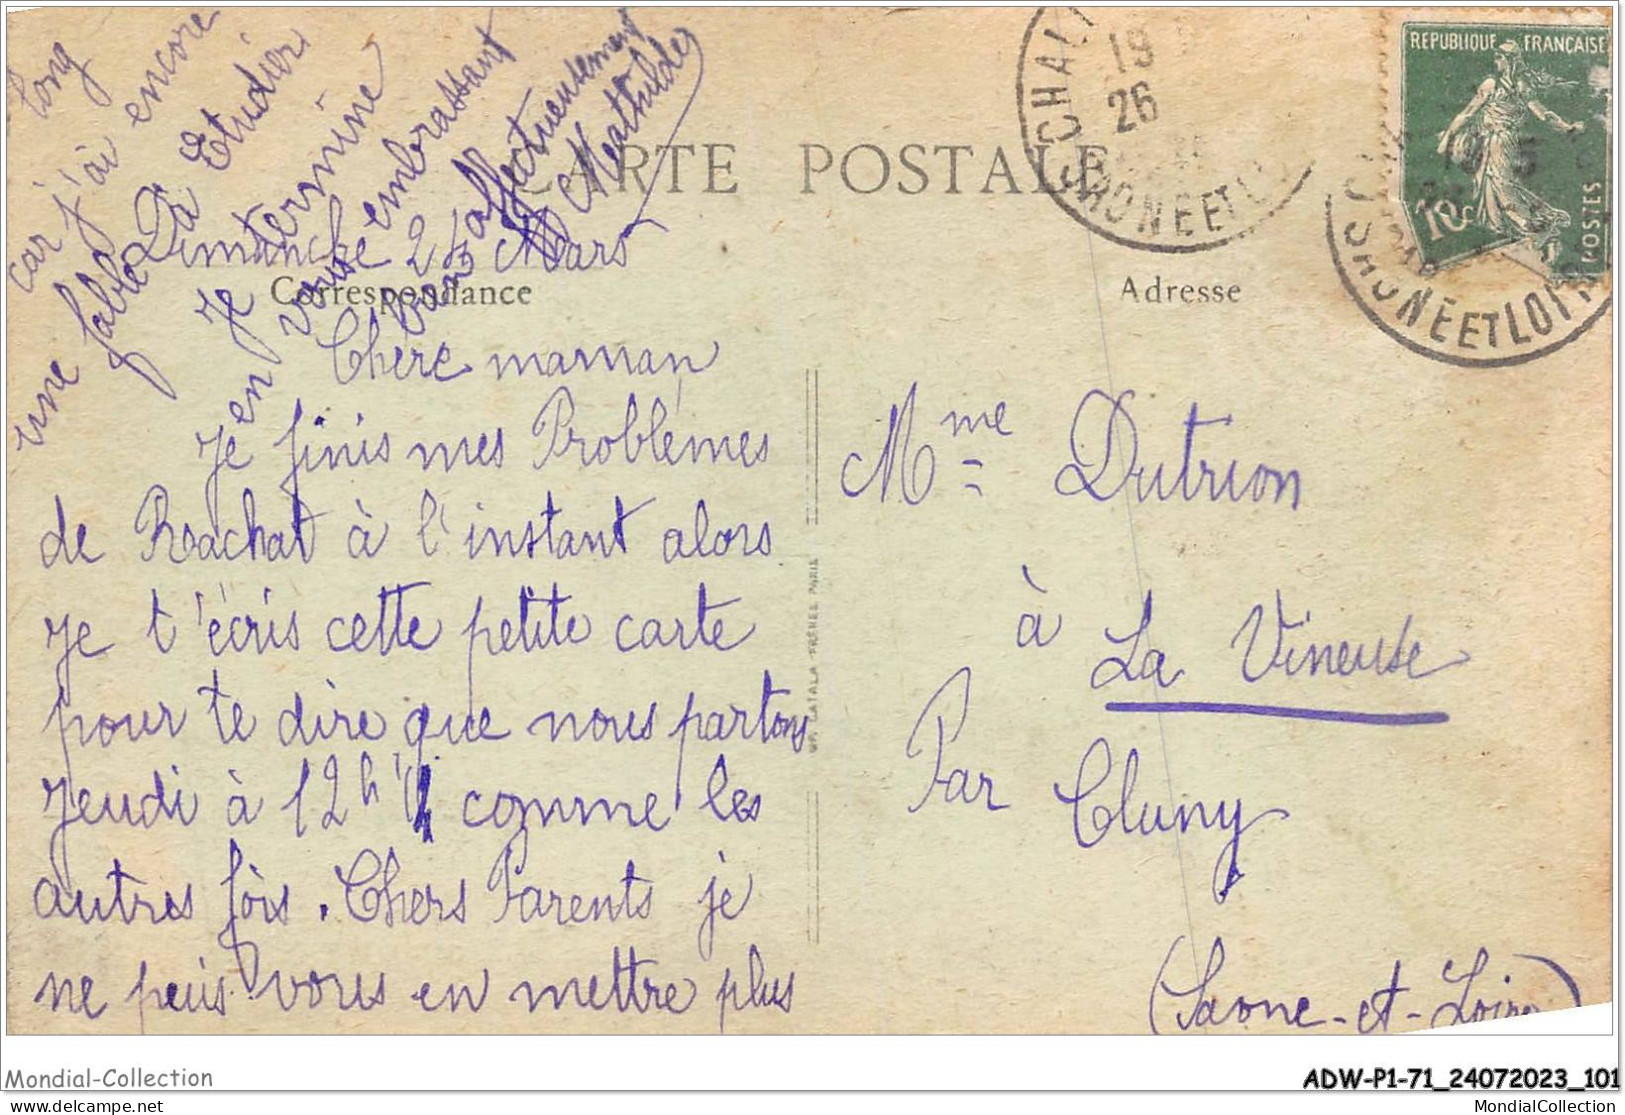 CARTE POSTALE
Correspondance
Adresse
REPUBLIQUE FRANÇAISE
10c
POSTES
CHAL
19
26
SAONE ET L
SAONE ET LOIRE
Dimanche 24 Mars
Chère maman
Je finis mes Problèmes
de Rachat à l'instant alors
Je t'écris cette petite carte
pour te dire que nous partons
Jeudi à 12h 1/4 comme les
autres fois. Chers Parents je
ne puis vous en mettre plus
long
car j'ai encore
une fable à Etudier
Je termine
en vous embrassant
bien affectueusement
Mathilde
Mme Dutrion
à La Vineuse
Par Cluny
(Saone-et-Loire)
LAPINA FRÈRES PARIS
Mondial-Collection
ADW-P1-71_24072023_101
delcampe.net
MondialCollection